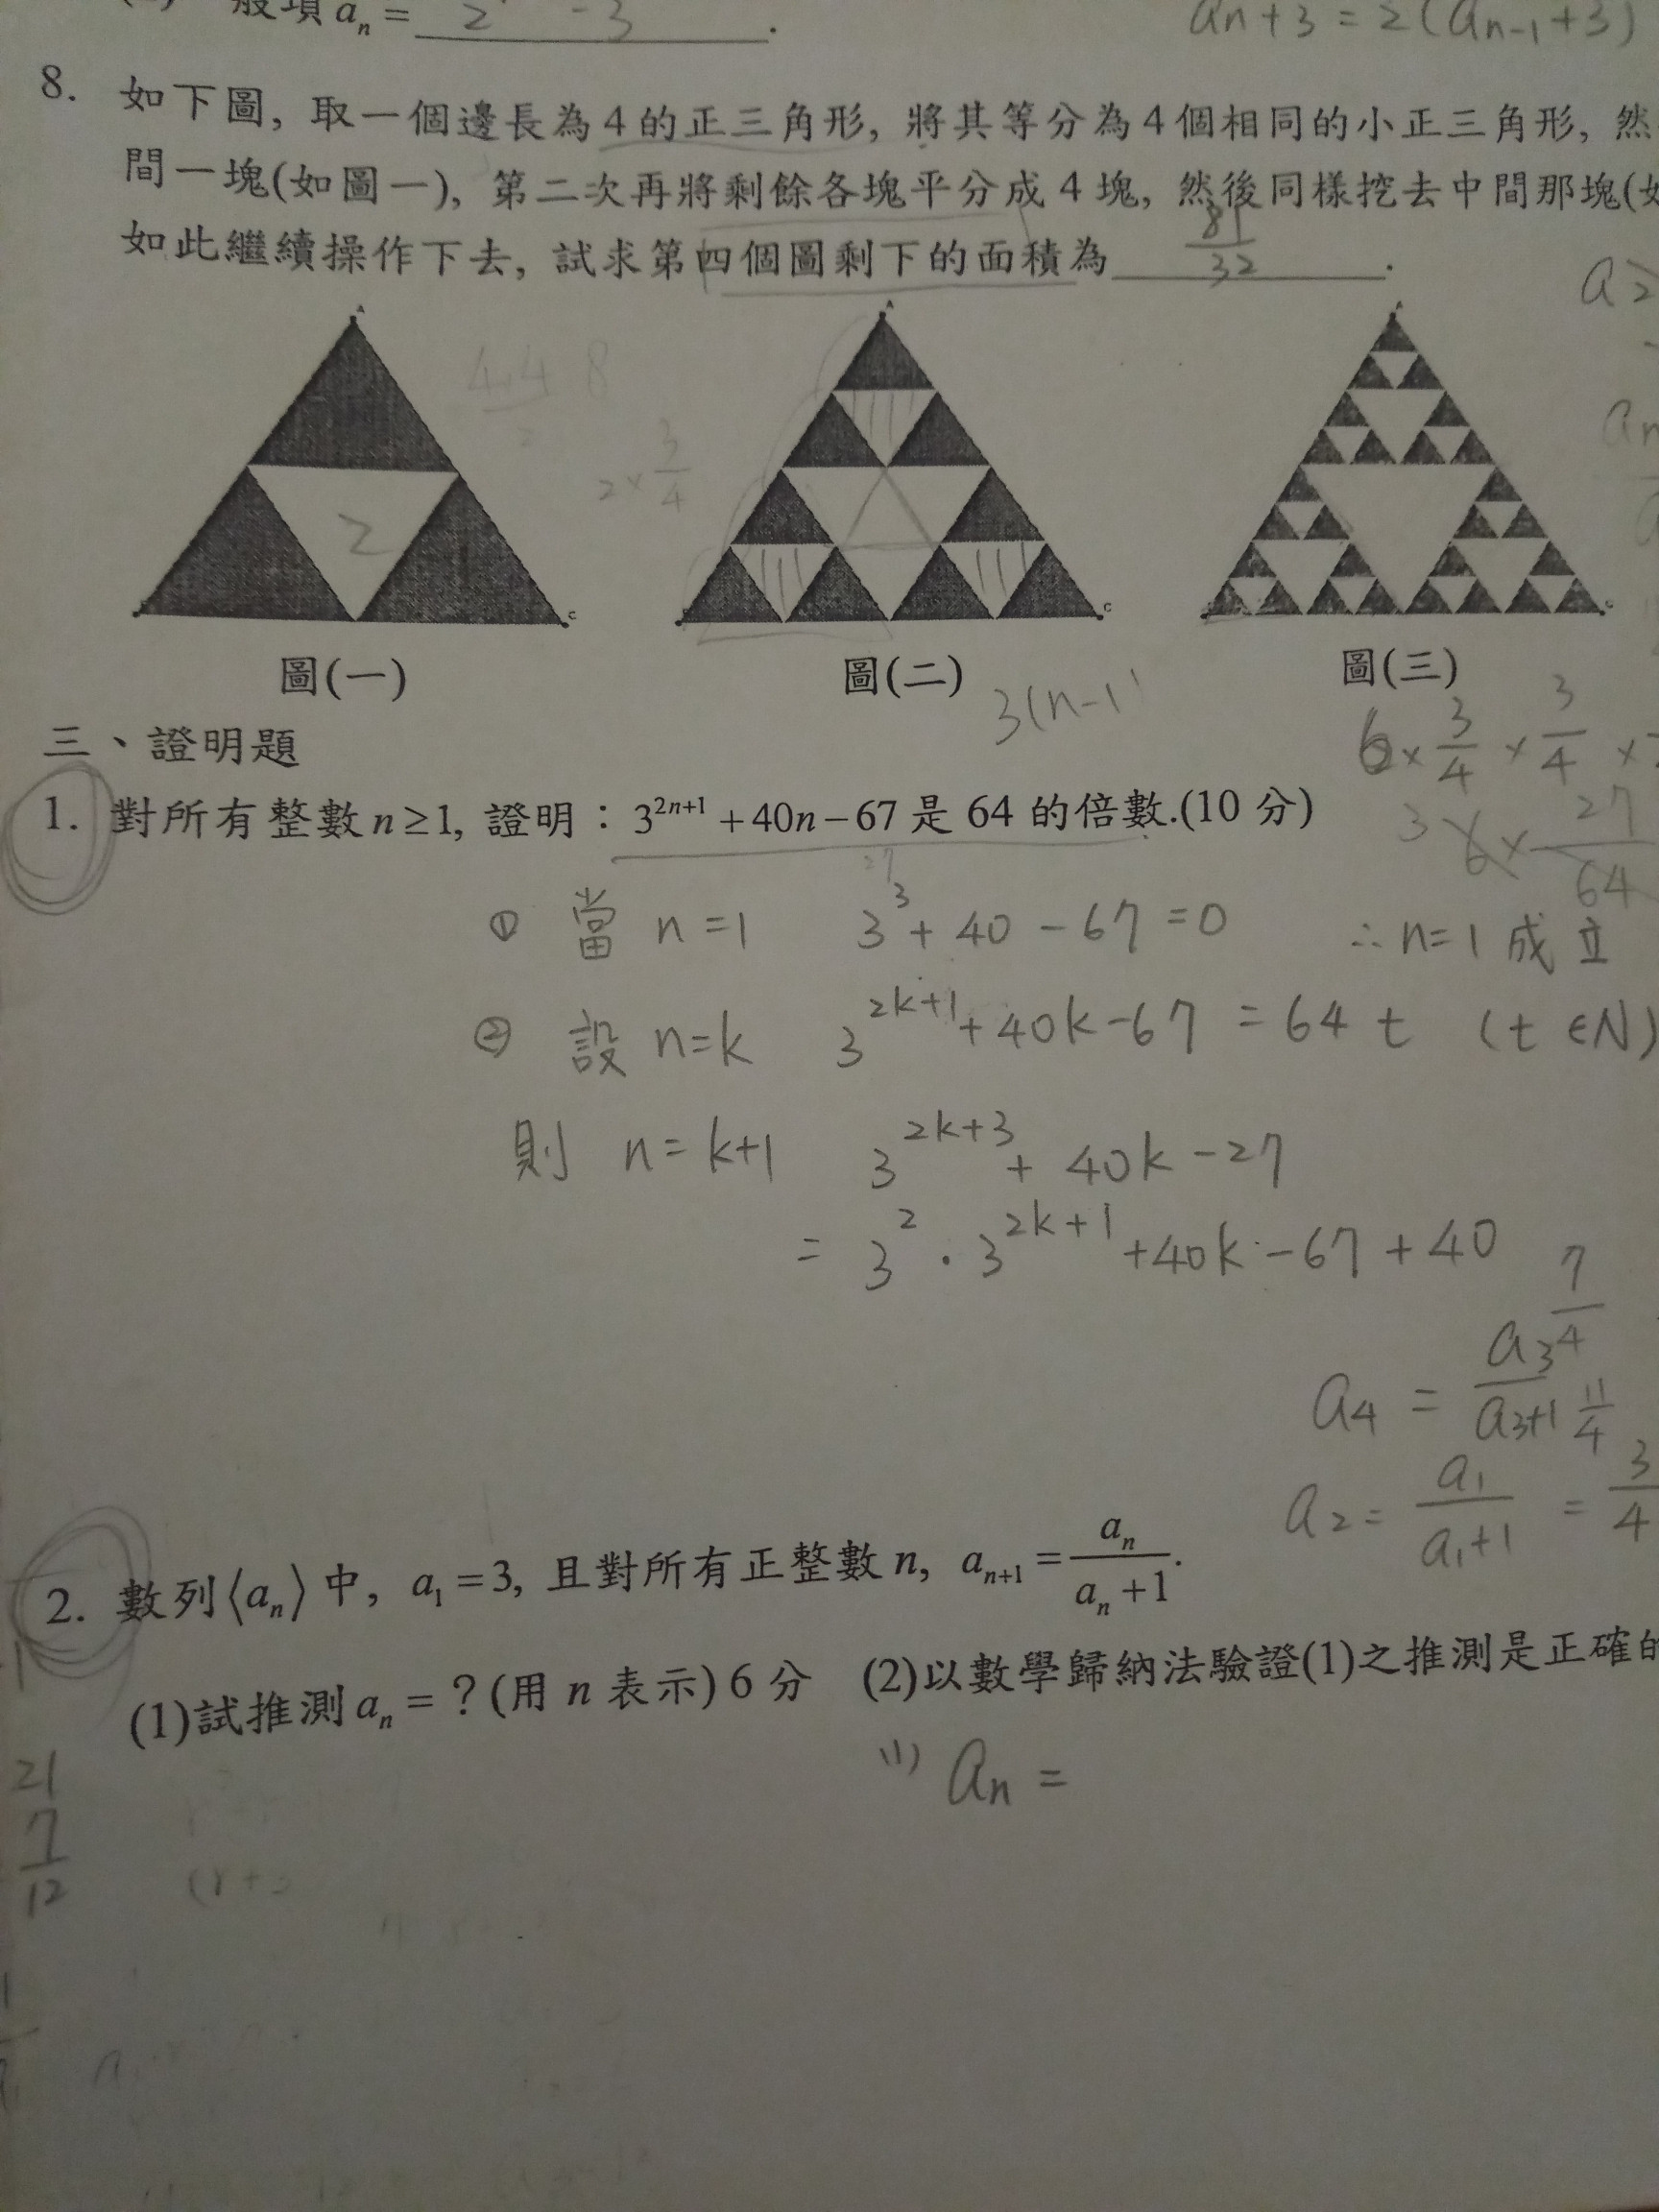 般項 aₙ = 2 - 3 .
aₙ + 3 = 2(aₙ₋₁ + 3)
8. 如下圖, 取一個邊長為 4 的正三角形, 將其等分為 4 個相同的小正三角形, 然
間一塊(如圖一), 第二次再將剩餘各塊平分成 4 塊, 然後同樣挖去中間那塊(如
如此繼續操作下去, 試求第四個圖剩下的面積為 81/32 .
a₂
A A A
4.4 8
2
2 × 3/4
2
C C
圖(一) 圖(二) 圖(三)
3(n-1)
6 × 3/4 × 3/4 ×
三、證明題
1. 對所有整數 n ≥ 1, 證明：3²ⁿ⁺¹ + 40n − 67 是 64 的倍數.(10 分)
3 6 × 27/64
27
① 當 n = 1 3³ + 40 - 67 = 0 ∴ n = 1 成立
② 設 n = k 3²ᵏ⁺¹ + 40k - 67 = 64 t (t ∈ N)
則 n = k+1 3²ᵏ⁺³ + 40k - 27
= 3² · 3²ᵏ⁺¹ + 40k - 67 + 40
7/4
a₄ = a₃/(a₃+1) 11/4
a₂ = a₁/(a₁+1) = 3/4
2. 數列⟨aₙ⟩中, a₁ = 3, 且對所有正整數 n, aₙ₊₁ = aₙ/(aₙ + 1).
(1)試推測 aₙ = ? (用 n 表示) 6 分 (2)以數學歸納法驗證(1)之推測是正確的
(1) aₙ =
21
7
12